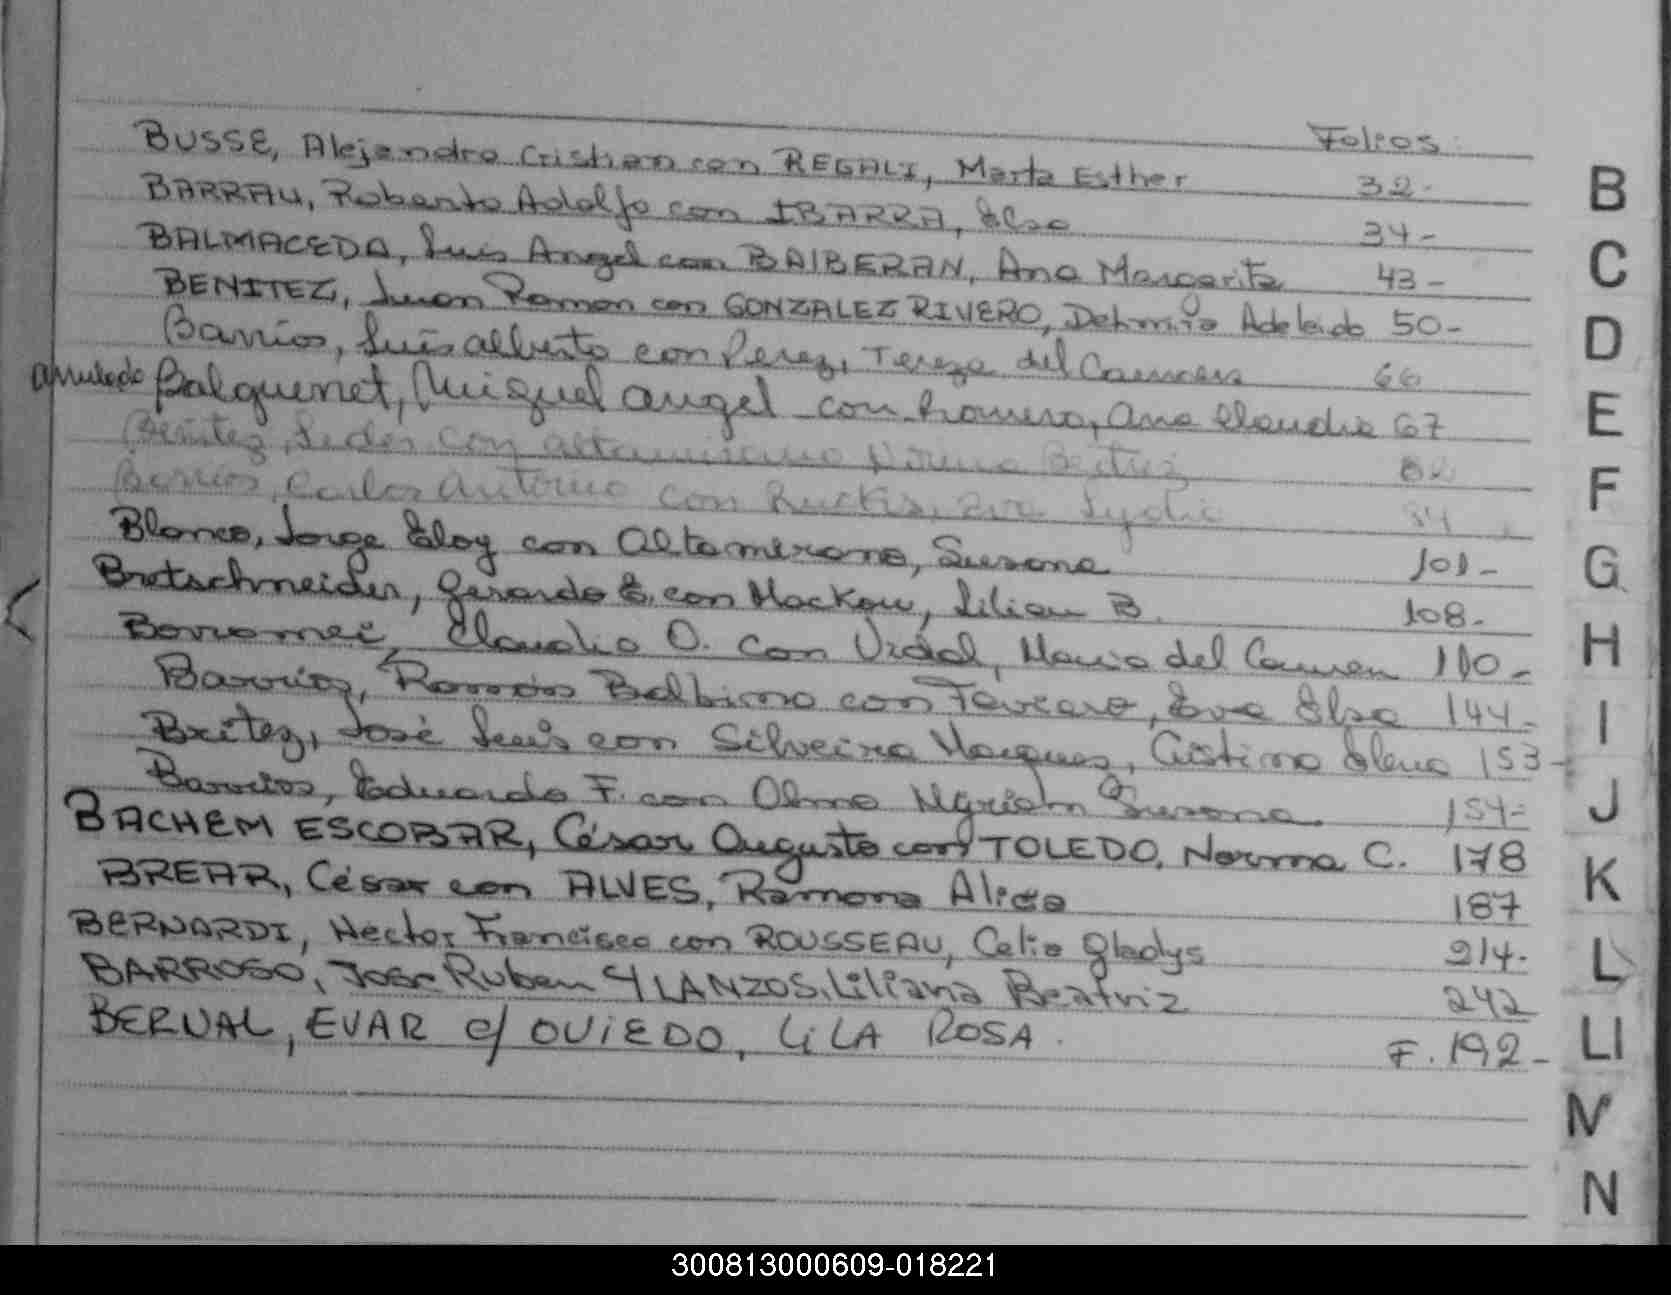 Folios
BUSSE, Alejandro Cristian con REGALI, Marta Esther 32-
BARRAU, Roberto Adolfo con IBARRA, Elsa 34-
BALMACEDA, Luis Angel con BAIBERAN, Ana Margarita 43-
BENITEZ, Juan Ramon con GONZALEZ RIVERO, Adelaida 50-
Barrios, Luis Alberto con Perez, Tereza del Carmen 66
anulado Balquenet, Miguel Angel con Romero, Ana Claudia 67
Benitez, con Altamirano Beatriz 82
Barrios, Carlos Antonio con Eva Lydia 84
Blanco, Jorge Eloy con Altamirano, Susana 101-
Bretschneider, Gerardo E. con Mackow, Lilian B. 108-
Borromei, Claudio O. con Vidal, Maria del Carmen 110-
Barrios, Ramón Balbino con Eva Elsa 144-
Britez, José Luis con Silveira Marques, Cristina Elena 153-
Barrios, Eduardo F. con Olmo Myriam Susana 154-
BACHEM ESCOBAR, César Augusto con TOLEDO, Norma C. 178
BREAR, César con ALVES, Ramona Alicia 187
BERNARDI, Hector Francisco con ROUSSEAU, Celia Gladys 214-
BARROSO, Jose Ruben y LANZOS, Liliana Beatriz 242
BERVAL, EVAR c/ OVIEDO, LILA ROSA. F. 192-
B
C
D
E
F
G
H
I
J
K
L
Ll
M
N
300813000609-018221